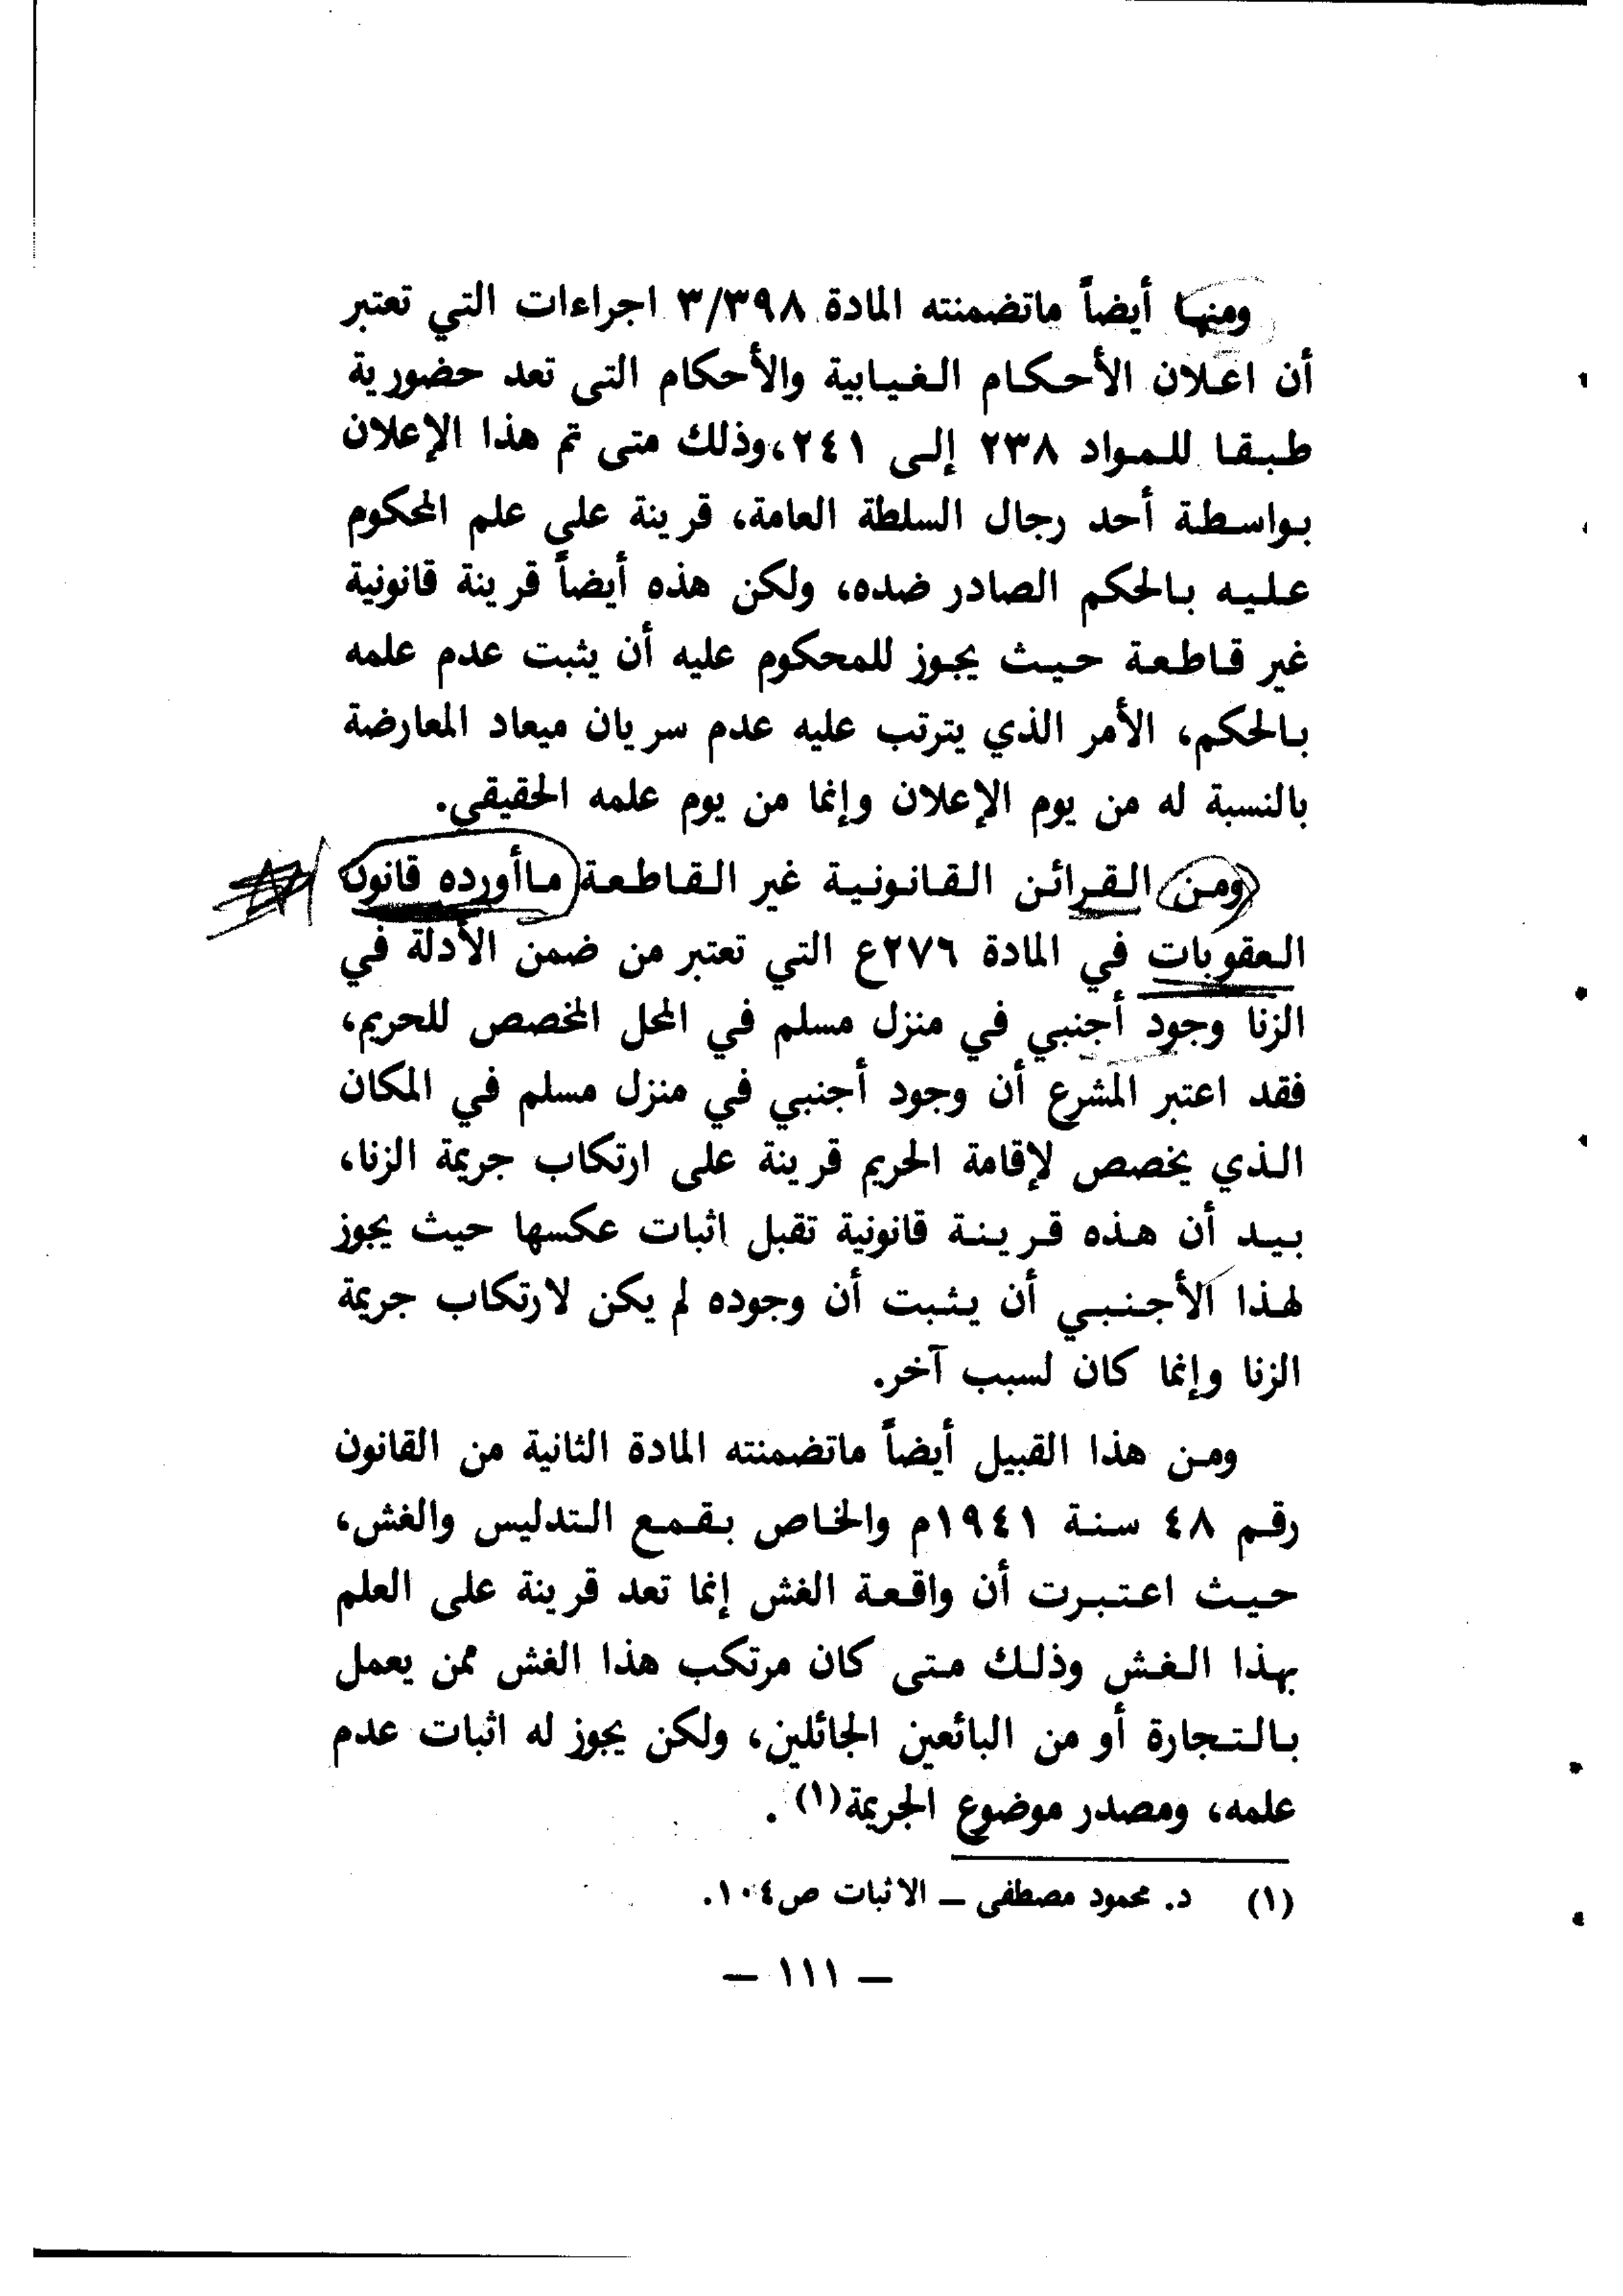 ومنها أيضاً ماتضمنته المادة ٣/٣٩٨ اجراءات التي تعتبر
أن اعلان الأحكام الغيابية والأحكام التى تعد حضورية
طبقا للمواد ٢٣٨ إلى ٢٤١، وذلك متى تم هذا الإعلان
بواسطة أحد رجال السلطة العامة، قرينة على علم المحكوم
عليه بالحكم الصادر ضده، ولكن هذه أيضاً قرينة قانونية
غير قاطعة حيث يجوز للمحكوم عليه أن يثبت عدم علمه
بالحكم، الأمر الذي يترتب عليه عدم سريان ميعاد المعارضة
بالنسبة له من يوم الإعلان وإنما من يوم علمه الحقيقي.
ومن القرائن القانونية غير القاطعة ماأورده قانون
العقوبات في المادة ٢٧٦ع التي تعتبر من ضمن الأدلة في
الزنا وجود أجنبي في منزل مسلم في المحل المخصص للحريم،
فقد اعتبر المشرع أن وجود أجنبي في منزل مسلم في المكان
الذي يخصص لإقامة الحريم قرينة على ارتكاب جريمة الزنا،
بيد أن هذه قرينة قانونية تقبل اثبات عكسها حيث يجوز
لهذا الأجنبي أن يثبت أن وجوده لم يكن لارتكاب جريمة
الزنا وإنما كان لسبب آخر.
ومن هذا القبيل أيضاً ماتضمنته المادة الثانية من القانون
رقم ٤٨ سنة ١٩٤١م والخاص بقمع التدليس والغش،
حيث اعتبرت أن واقعة الغش إنما تعد قرينة على العلم
بهذا الغش وذلك متى كان مرتكب هذا الغش ممن يعمل
بالتجارة أو من البائعين الجائلين، ولكن يجوز له اثبات عدم
علمه، ومصدر موضوع الجريمة(١).
(١) د. محمود مصطفى ــ الاثبات ص١٠٤.
ــ ١١١ ــ